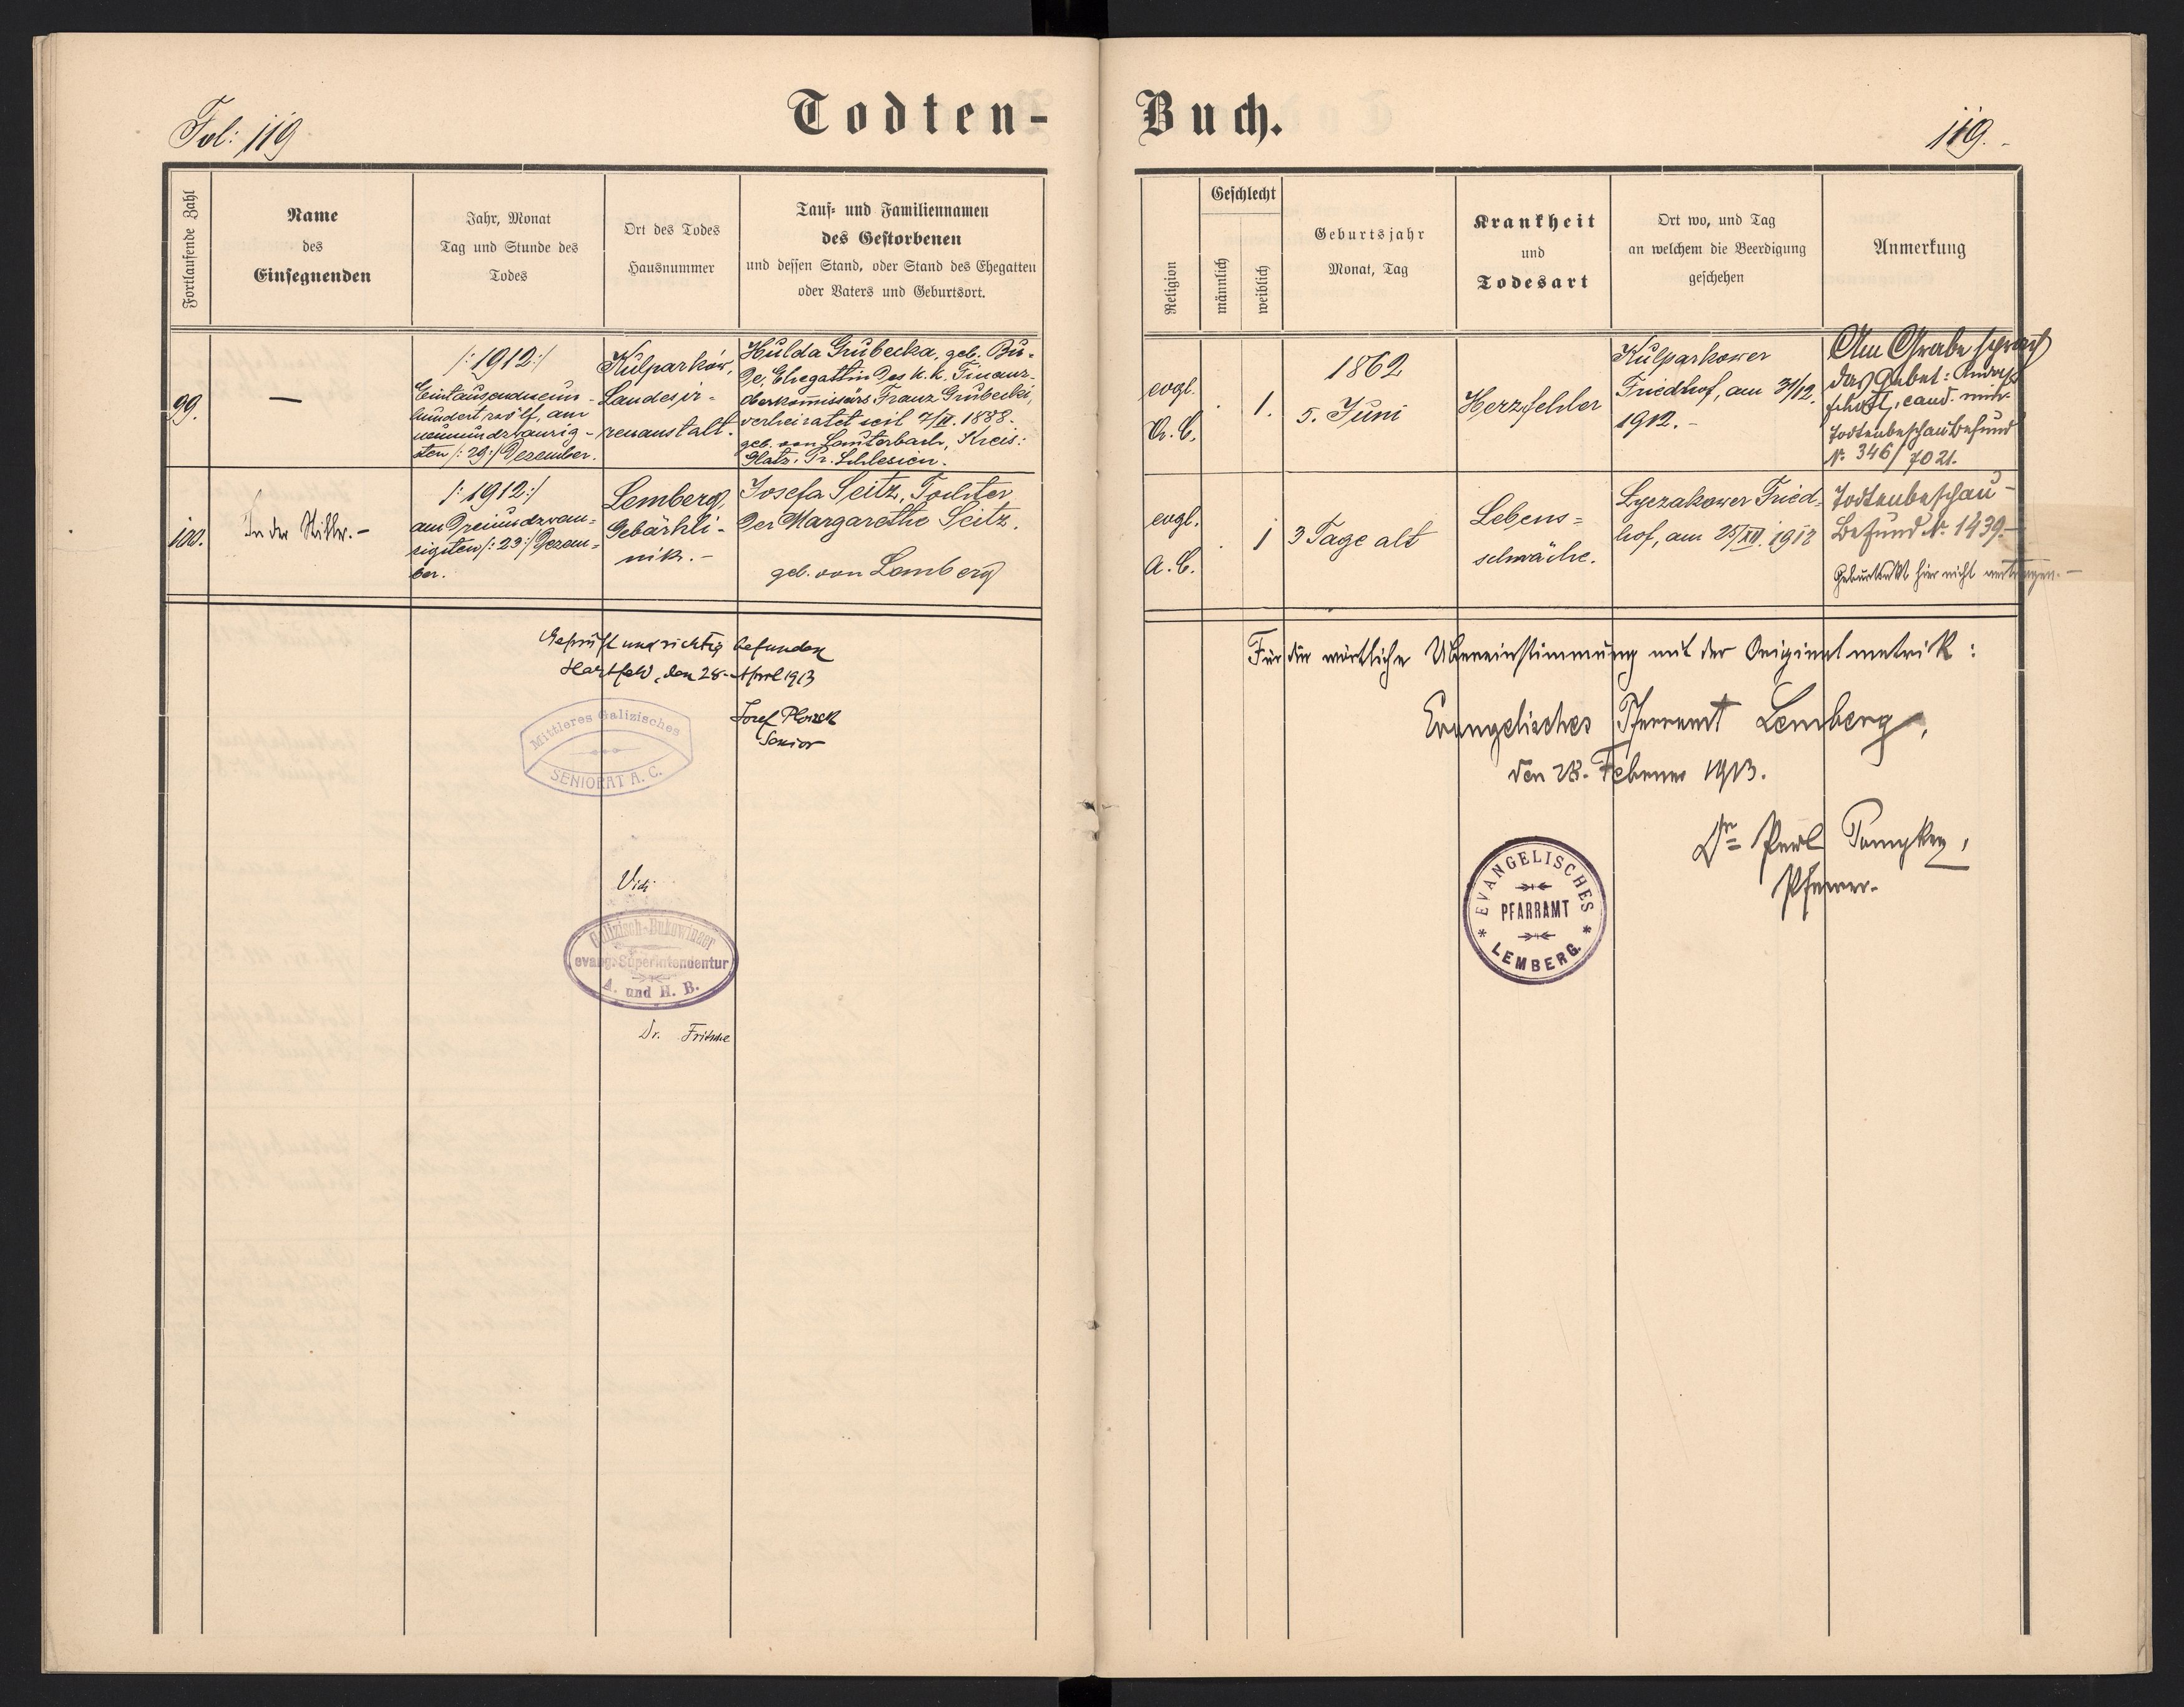 Todten-
Buch.
Fol: 119
119.
Fortlaufende Zahl
Name
des
Einsegnenden
Jahr, Monat
Tag und Stunde des
Todes
Ort des Todes
Hausnummer
Tauf- und Familiennamen
des Gestorbenen
und dessen Stand, oder Stand des Ehegatten
oder Vaters und Geburtsort.
Religion
Geschlecht
männlich
weiblich
Geburtsjahr
Monat, Tag
Krankheit
und
Todesart
Ort wo, und Tag
an welchem die Beerdigung
geschehen
Anmerkung
99.
—
/:1912:/
Eintausendneun-
hundertzwölf, am
neunundzwanzig-
sten /:29:/ Dezember.
Kulparków,
Landesir-
renanstalt.
Hulda Grubecka, geb. Bu-
de, Ehegattin des k.k. Finanz-
oberkommissärs Franz Grubecki,
verheiratet seit 7/II. 1888.
geb. von Lauterbach, Kreis:
Glatz. Pr. Schlesien.
evgl.
A.C.
.
1.
1862
5. Juni
Herzfehler
Kulparkower
Friedhof, am 31/12.
1912.-
Am Grabe sprach
das Gebet:
cand. min.
Todtenbeschaubefund
N. 346/7021.
100.
In der Stille.-
/:1912:/
am Dreiundzwan-
zigsten /:23:/ Dezem-
ber.
Lemberg,
Gebärkli-
nik.-
Josefa Seitz, Tochter
der Margarethe Seitz.
geb. von Lemberg
evgl.
A.C.
.
1
3 Tage alt
Lebens=
schwäche.
Lyczakower Fried-
hof, am 25/XII. 1912
Todtenbeschau-
Befund N. 1439.-
Geburtsakt hier nicht eingetragen.-
Geprüft und richtig befunden
Hartfeld, den 28. April 1913
Josef
Senior
Mittleres Galizisches
SENIORAT A. C.
Vidi
Galizisch-Bukowinaer
evang. Superintendentur
A. und H. B.
Dr. Fritsche
Für die wörtliche Übereinstimmung mit der Originalmetrik:
Evangelisches Pfarramt Lemberg,
den 28. Feber 1913.
Dr Paul
Pfarrer.
EVANGELISCHES
PFARRAMT
* LEMBERG. *